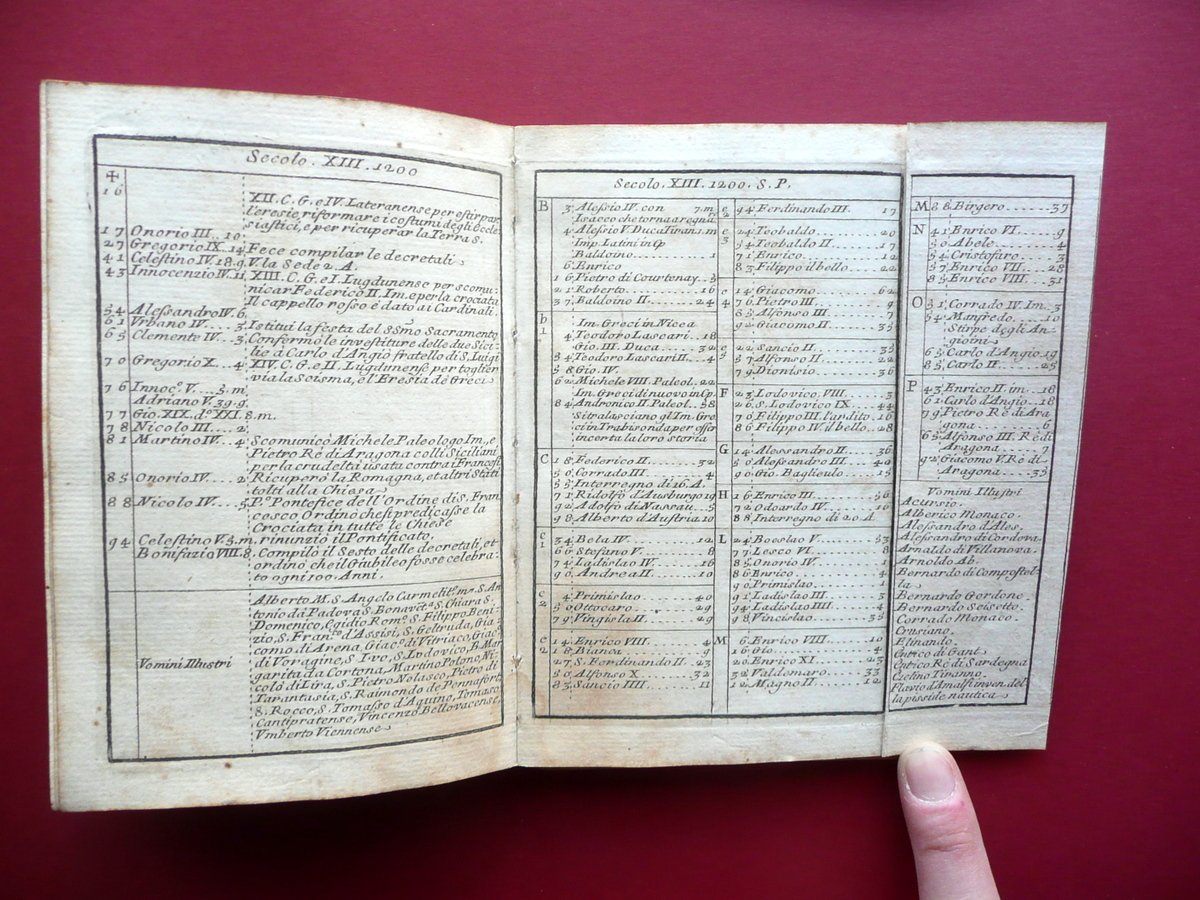 Secolo. XIII. 1200
✠
16 XII. C. G. e IV. Lateranense per estirpar
l'eresie, riformare i costumi degli Eccle
siastici, e per ricuperar la Terra S.
17 Onorio III.. 10.
27 Gregorio IX. 14 Fece compilar le decretali
41 Celestino IV. 18. g. V. la Sede 2. A.
43 Innocenzio IV. 11 XIII. C. G. e I. Lugdunense per scomu
nicar Federico II. Im. e per la crociata
Il cappello rosso è dato ai Cardinali.
54 Alessandro IV. 6.
61 Vrbano IV... 3. Istituì la festa del SSmo Sacramento
65 Clemente IV.. 3. Confermò le investiture delle due Sici
lie à Carlo d'Angiò fratello di S. Luigi
70 Gregorio X.... 4 XIV. C. G. e II. Lugdunense per toglier
via la Scisma, e l'Eresia dè Greci
76 Innoc.o V.... 5. m.
Adriano V. 39. g.
77 Gio. XIX. d.o XXI. 8. m.
78 Nicolo III.... 2
81 Martino IV... 4 Scomunicò Michele Paleologo Im., e
Pietro Rè di Aragona colli Siciliani
per la crudeltà usata contra i Francesi
85 Onorio IV... 2 Ricuperò la Romagna, et altri Stati
tolti alla Chiesa
88 Nicolo IV.... 5 P.o Pontefice dell'Ordine di S. Fran
cesco Ordinò che si predicasse la
Crociata in tutte le Chiese
94 Celestino V. 5. m. rinunziò il Pontificato.
Bonifazio VIII. 8. Compilò il Sesto delle decretali, et
ordinò che il Giubileo fosse celebra
to ogni 100. Anni.
Vomini Illustri
Alberto M. S. Angelo Carmelit.o m.e S. An
tonio da Padova S. Bonavēt.a S. Chiara S.
Domenico, Egidio Rom.o S. Filippo Beni
zio, S. Fran.co d'Assisi, S. Geltruda, Gia
como di Arena, Giac.o di Vitriaco, Giac.o
di Voragine, S. Ivo, S. Lodovico, B. Mar
garita da Cortona, Martino Polono, Ni
colò di Lira, S. Pietro Nolasco, Pietro di
Tarantasia, S. Raimondo de Pennafort
S. Rocco, S. Tomasso d'Aquino, Tomaso
Cantipratense, Vincenzo Bellovacense,
Vmberto Viennense
Secolo. XIII. 1200. S. P.
B 3 Alessio IV. con 7. m
Isacco che torna a regnar
4 Alessio V. Duca Tiran. 1. m
Imp. Latini in Cp
Baldoino..... 1
6 Enrico
16 Pietro di Courtenay.. 5
21 Roberto......... 16
37 Baldoino II...... 24
b 1 Im. Greci in Nicea
4 Teodoro Lascari.. 18
Gio. III. Duca.... 32
54 Teodoro Lascari II.. 4
58 Gio. IV.
62 Michele VIII. Paleol.. 22
Im. Greci di nuovo in Cp.
84 Andronico II. Paleol.. 58
Si tralasciano gl'Im. Gre
ci in Trabisonda per esser
incerta la loro storia
C 18 Federico II....... 32
50 Corrado III....... 4
55 Interregno di 16. A.
71 Ridolfo d'Ausburgo 19
92 Adolfo di Nassau... 5
98 Alberto d'Austria 10
c 1 34 Bela IV.......... 12
66 Stefano V........ 8
74 Ladislao IV...... 16
90 Andrea II....... 10
c 2 4 Primislao....... 40
50 Ottocaro........ 29
79 Vingisla II...... 29
e 2 14 Enrico VIII...... 4
18 Bianca.......... 9
27 S. Ferdinando II.. 23
50 Alfonso X....... 32
83 Sancio IIII...... 11
e 2 94 Ferdinando III. 17
e 3 24 Teobaldo....... 20
54 Teobaldo II..... 17
71 Enrico.......... 12
83 Filippo il bello... 22
e 4 14 Giacomo....... 62
76 Pietro III....... 9
85 Alfonso III..... 7
92 Giacomo II..... 35
e 5 22 Sancio II....... 35
57 Alfonso II...... 22
79 Dionisio........ 36
F 23 Lodovico VIII.... 3
26 S. Lodovico IX... 44
70 Filippo III. l'ardito. 16
86 Filippo IV. il bello.. 28
G 14 Alessandro II.... 36
50 Alessandro III... 40
90 Gio. Baglieulo... 15
H 16 Enrico III...... 56
72 Odoardo IV..... 10
88 Interregno di 20 A.
L 24 Boeslao V...... 53
77 Lesco VI....... 8
85 Onorio IV...... 1
86 Enrico......... 4
90 Primislao...... 1
91 Ladislao III.... 4
94 Ladislao IIII... 4
98 Vincislao...... 35
M 6 Enrico VIII..... 10
16 Gio............ 4
20 Enrico XI...... 23
32 Valdemaro..... 33
12 Magno II...... 12
M 88 Birgero..... 37
N 41 Enrico VI..... 9
50 Abele......... 4
54 Cristofaro.... 3
57 Enrico VII.... 28
85 Enrico VIII... 31
O 51 Corrado IV. Im. 3
54 Manfredo.... 10
Stirpe degli An
gioini
65 Carlo d'Angio 19
85 Carlo II..... 25
P 43 Enrico II. im.. 18
61 Carlo d'Angio.. 18
79 Pietro Rè di Ara
gona......... 6
65 Alfonso III. Rè di
Aragona..... 7
92 Giacomo V. Rè di
Aragona..... 35
Vomini Illustri
Accursio.
Alberico Monaco.
Alessandro d'Ales.
Alessandro di Cordova.
Arnaldo di Villanova.
Arnoldo Ab.
Bernardo di Compostel
la
Bernardo Gordone.
Bernardo Seisetto.
Corrado Monaco.
Crusiano.
Elinando.
Enrico di Gant
Entico Rè di Sardegna
Ezelino Tiranno.
Flavio d'Amalfi inven. del
la pisside nautica